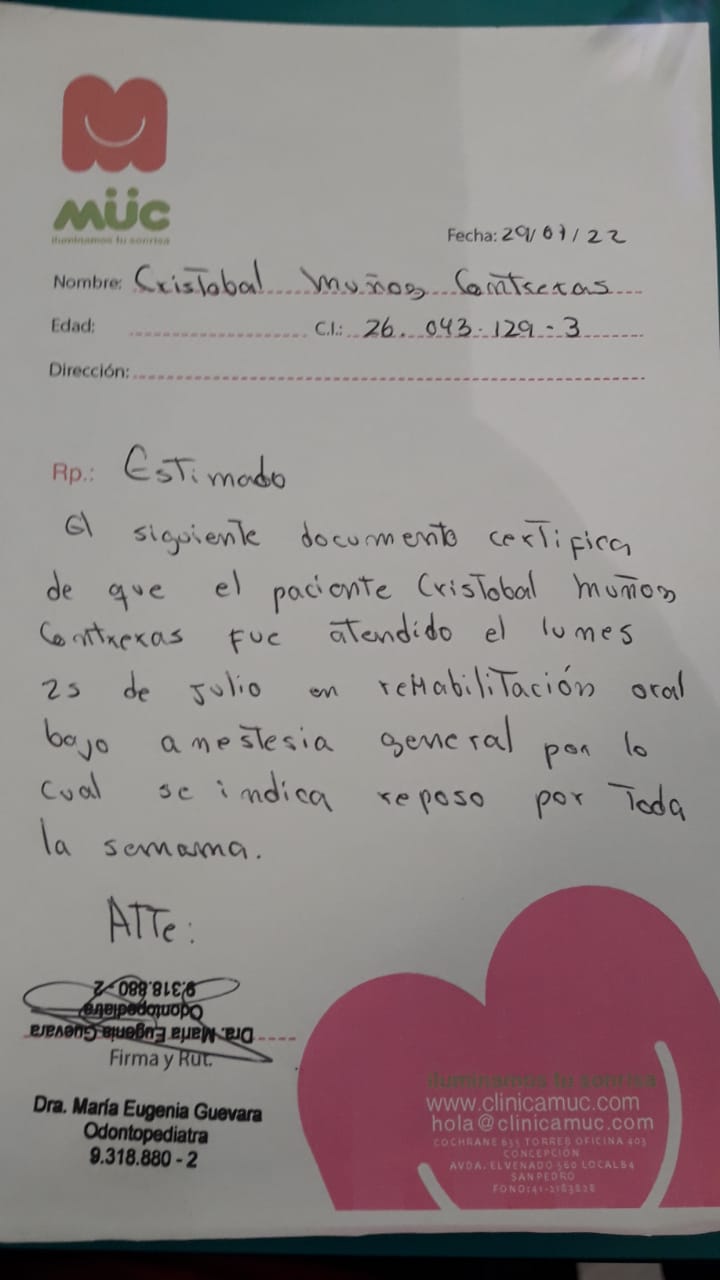 MÜC
iluminamos tu sonrisa
Fecha: 29/07/22
Nombre: Cristobal Muños Contreras
Edad: C.I.: 26.043.129-3
Dirección:
Rp.: Estimado
El siguiente documento certifica
de que el paciente Cristobal Muños
Contreras fue atendido el lunes
25 de julio en reHabilitación oral
bajo anestesia general por lo
cual se indica reposo por Toda
la semama.
ATTe:
9.318.880 - 2
Odontopediatra
Dra. María Eugenia Guevara
Firma y Rut.
Dra. María Eugenia Guevara
Odontopediatra
9.318.880 - 2
iluminamos tu sonrisa
www.clinicamuc.com
hola@clinicamuc.com
COCHRANE 635 TORRE B OFICINA 403
CONCEPCIÓN
AVDA. EL VENADO 560 LOCAL B4
SAN PEDRO
FONO: 41-2183828